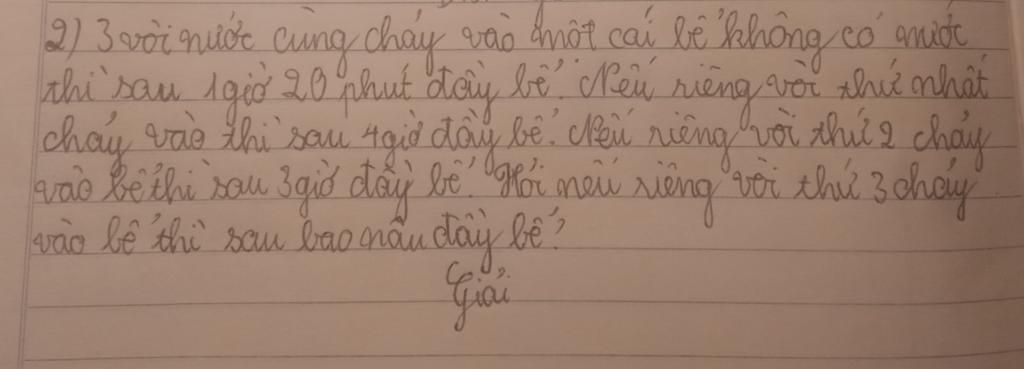 2) 3 vời nước cùng chảy vào một cái bể không có nước
thì sau 1 giờ 20 phut đầy bể. Nếu riêng vời thứ nhất
chảy vào thì sau 4 giờ đầy bể. Nếu riêng vời thứ 2 chảy
vào bể thì sau 3 giờ đầy bể. Hỏi nếu riêng vời thứ 3 chảy
vào bể thì sau bao nâu đầy bể?
Giải